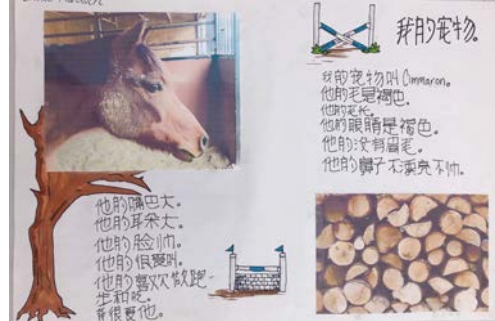 我的宠物。
我的宠物叫 Cimmaron。
他的毛是褐色。
他的毛长。
他的眼睛是褐色。
他的没有眉毛。
他的鼻子不漂亮不帅。
他的嘴巴大。
他的耳朵大。
他的脸帅。
他的很爱叫。
他的喜欢做跑-
坐和吃。
很爱他。